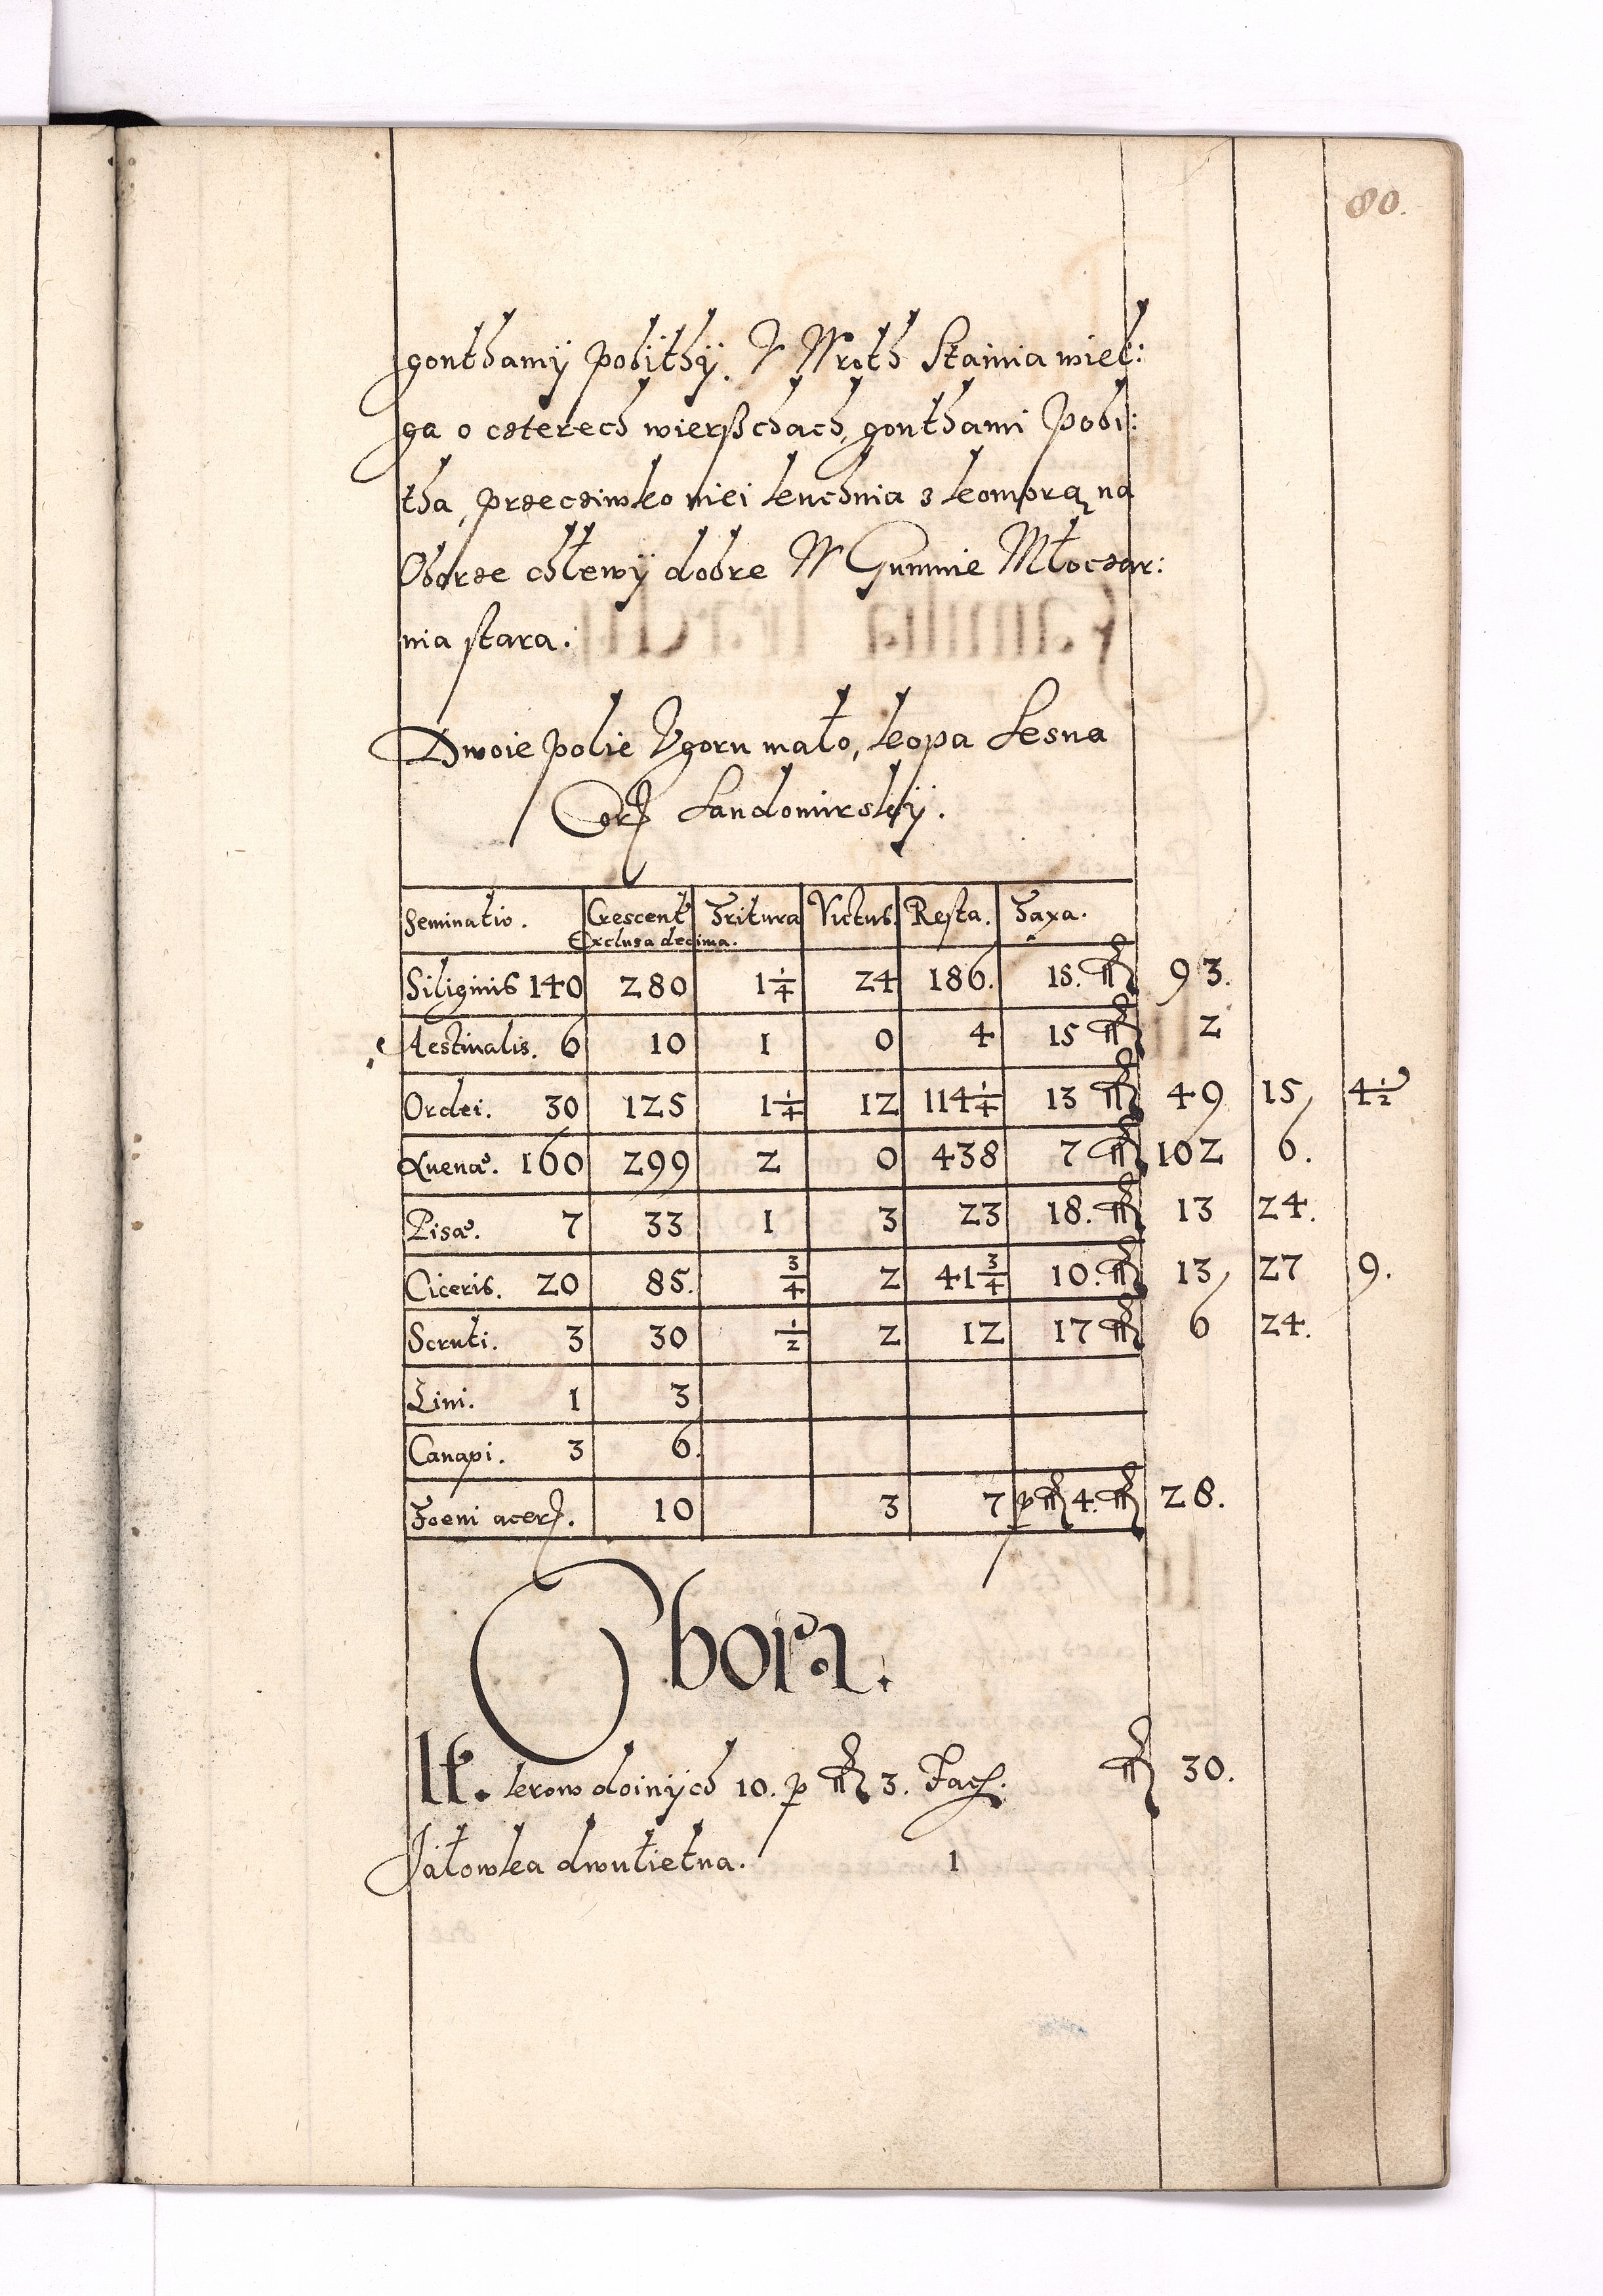 80.
gonthamÿ pobÿthÿ. V Wroth Stainia wiel:
ga o czterech wierßchach, gonthami pobi:
tha, przeciwko niei kuchnia z komorą na
Oborze chlewÿ dobre W Gumnie Młoczar:
nia stara.
Dwoie polie Vgoru mało, kopa Lesna
Sandomirskÿ.
Seminatio. Crescent Tritura Victus. Resta. Taxa.
Exclusa decima.
Siliginis 140 280 1 1/4 24 186. 15. 93.
Aestivalis. 6 10 1 0 4 15 2
Ordei. 30 125 1 1/4 12 114 1/4 13 49 15 4 1/2
Auenæ. 160 299 2 0 438 7 102 6.
Pisæ. 7 33 1 3 23 18. 13 24.
Ciceris. 20 85. 3/4 2 41 3/4 10. 13 27 9.
Scruti. 3 30 1/2 2 12 17 6 24.
Lini. 1 3
Canapi. 3 6.
Foeni acer. 10 3 7 p 4. 28.
Obora.
It. krow doinÿch 10. p 3. Fac. 30.
Jałowka dwulietna. 1